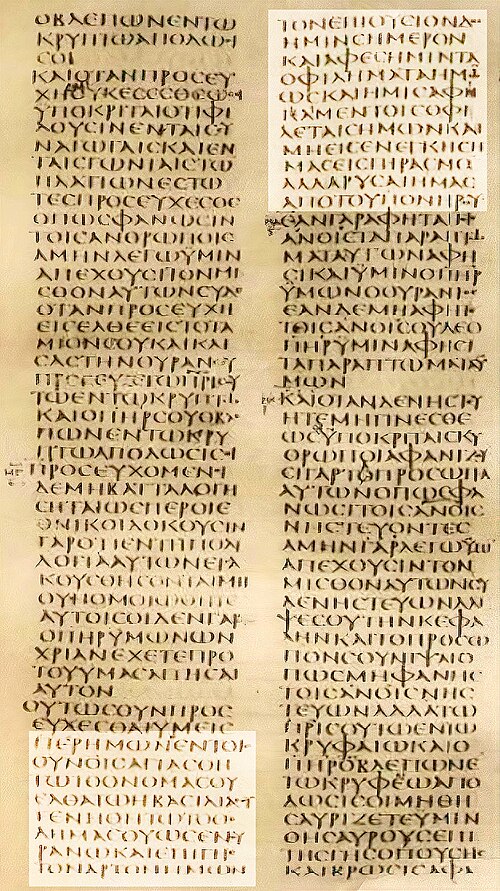 ΟΒΛΕΠΩΝΕΝΤΩ
ΚΡΥΠΤΩΑΠΟΔΩϹΙ
ϹΟΙ
ΚΑΙΟΤΑΝΠΡΟϹΕΥ
ΧΗϹΟΥΚΕϹΕϹΘΕΩϹΟΙ
ΥΠΟΚΡΙΤΑΙΟΤΙΦΙ
ΛΟΥϹΙΝΕΝΤΑΙϹϹΥ
ΝΑΓΩΓΑΙϹΚΑΙΕΝ
ΤΑΙϹΓΩΝΙΑΙϹΤΩ
ΠΛΑΤΙΩΝΕϹΤΩ
ΤΕϹΠΡΟϹΕΥΧΕϹΘΕ
ΟΠΩϹΦΑΝΩϹΙΝ
ΤΟΙϹΑΝΘΡΩΠΟΙϹ
ΑΜΗΝΛΕΓΩΥΜΙΝ
ΑΠΕΧΟΥϹΙΤΟΝΜΙ
ϹΘΟΝΑΥΤΩΝϹΥΔΕ
ΟΤΑΝΠΡΟϹΕΥΧΗ
ΕΙϹΕΛΘΕΕΙϹΤΟΤΑ
ΜΙΟΝϹΟΥΚΑΙΚΛΙ
ϹΑϹΤΗΝΘΥΡΑΝϹΟΥ
ΠΡΟϹΕΥΞΕΤΩΠΡΙϹΟΥ
ΤΩΕΝΤΩΚΡΥΠΤΩ
ΚΑΙΟΠΗΡϹΟΥΟΒΛΕ
ΠΩΝΕΝΤΩΚΡΥ
ΠΤΩΑΠΟΔΩϹΙϹΟΙ
ΠΡΟϹΕΥΧΟΜΕΝΟΙ
ΔΕΜΗΒΑΤΤΑΛΟΓΗ
ϹΗΤΑΙΩϹΠΕΡΟΙΕ
ΘΝΙΚΟΙΔΟΚΟΥϹΙΝ
ΓΑΡΟΤΙΕΝΤΗΠΟΛΥ
ΛΟΓΙΑΑΥΤΩΝΕΙϹΑ
ΚΟΥϹΘΗϹΟΝΤΑΙΜΗ
ΟΥΝΟΜΟΙΩΘΗΤΕ
ΑΥΤΟΙϹΟΙΔΕΝΓΑΡ
ΟΠΗΡΥΜΩΝΩΝ
ΧΡΙΑΝΕΧΕΤΕΠΡΟ
ΤΟΥΥΜΑϹΑΙΤΗϹΑΙ
ΑΥΤΟΝ
ΟΥΤΩϹΟΥΝΠΡΟϹ
ΕΥΧΕϹΘΑΙΥΜΕΙϹ
ΠΕΡΗΜΩΝΟΕΝΤΟΙϹ
ΟΥΝΟΙϹΑΓΙΑϹΘΗ
ΤΩΤΟΟΝΟΜΑϹΟΥ
ΕΛΘΑΤΩΗΒΑϹΙΛΙΑϹΟΥ
ΓΕΝΗΘΗΤΩΤΟΘΕ
ΛΗΜΑϹΟΥΩϹΕΝΟΥ
ΡΑΝΩΚΑΙΕΠΙΓΗϹ
ΤΟΝΑΡΤΟΝΗΜΩΝ
ΤΟΝΕΠΙΟΥϹΙΟΝΔΟϹ
ΗΜΙΝϹΗΜΕΡΟΝ
ΚΑΙΑΦΕϹΗΜΙΝΤΑ
ΟΦΙΛΗΜΑΤΑΗΜΩ
ΩϹΚΑΙΗΜΙϹΑΦΗ
ΚΑΜΕΝΤΟΙϹΟΦΙ
ΛΕΤΑΙϹΗΜΩΝΚΑΙ
ΜΗΕΙϹΕΝΕΓΚΗϹΗ
ΜΑϹΕΙϹΠΙΡΑϹΜΟ
ΑΛΛΑΡΥϹΑΙΗΜΑϹ
ΑΠΟΤΟΥΠΟΝΗΡΟΥ
ΕΑΝΓΑΡΑΦΗΤΑΙΤΟΙϹ
ΑΝΟΙϹΤΑΠΑΡΑΠΤΩ
ΜΑΤΑΑΥΤΩΝΑΦΗ
ϹΙΚΑΙΥΜΙΝΟΠΗΡ
ΥΜΩΝΟΟΥΡΑΝΙΟϹ
ΕΑΝΔΕΜΗΑΦΗΤΕ
ΤΟΙϹΑΝΟΙϹΟΥΔΕΟ
ΠΗΡΥΜΙΝΑΦΗϹΕΙ
ΤΑΠΑΡΑΠΤΩΜΑΤΑΥ
ΜΩΝ
ΚΑΙΟΤΑΝΔΕΝΗϹΤΕΥ
ΗΤΕΜΗΓΙΝΕϹΘΕ
ΩϹΥΠΟΚΡΙΤΑΙϹΚΥ
ΘΡΩΠΟΙΑΦΑΝΙΖΟΥ
ϹΙΓΑΡΤΟΠΡΟϹΩΠΟ
ΑΥΤΩΝΟΠΩϹΦΑ
ΝΩϹΙΤΟΙϹΑΝΟΙϹ
ΝΗϹΤΕΥΟΝΤΕϹ
ΑΜΗΝΓΑΡΛΕΓΩΥΜΙ
ΑΠΕΧΟΥϹΙΝΤΟΝ
ΜΙϹΘΟΝΑΥΤΩΝϹΥ
ΔΕΝΗϹΤΕΥΩΝΑΛΙ
ΨΕϹΟΥΤΗΝΚΕΦΑ
ΛΗΝΚΑΙΤΟΠΡΟϹΩ
ΠΟΝϹΟΥΝΙΨΑΙΟ
ΠΩϹΜΗΦΑΝΗϹ
ΤΟΙϹΑΝΟΙϹΝΗϹ
ΤΕΥΩΝΑΛΛΑΤΩ
ΠΡΙϹΟΥΤΩΕΝΤΩ
ΚΡΥΦΑΙΩΚΑΙΟ
ΠΗΡΟΒΛΕΠΩΝΕ
ΤΩΚΡΥΦΕΩΑΠΟ
ΔΩϹΙϹΟΙΜΗΘΗ
ϹΑΥΡΙΖΕΤΕΥΜΙΝ
ΘΗϹΑΥΡΟΥϹΕΠΙ
ΤΗϹΓΗϹΟΠΟΥϹΗϹ
ΚΑΙΒΡΩϹΙϹΑΦΑ